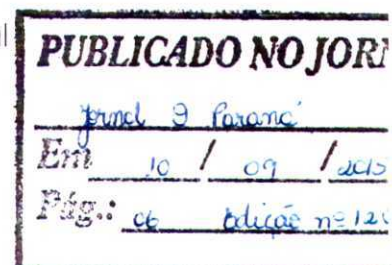 PUBLICADO NO JOR
Jornal O Paraná
Em 10 / 09 / 2015
Pág.: 06 Edição nº 12